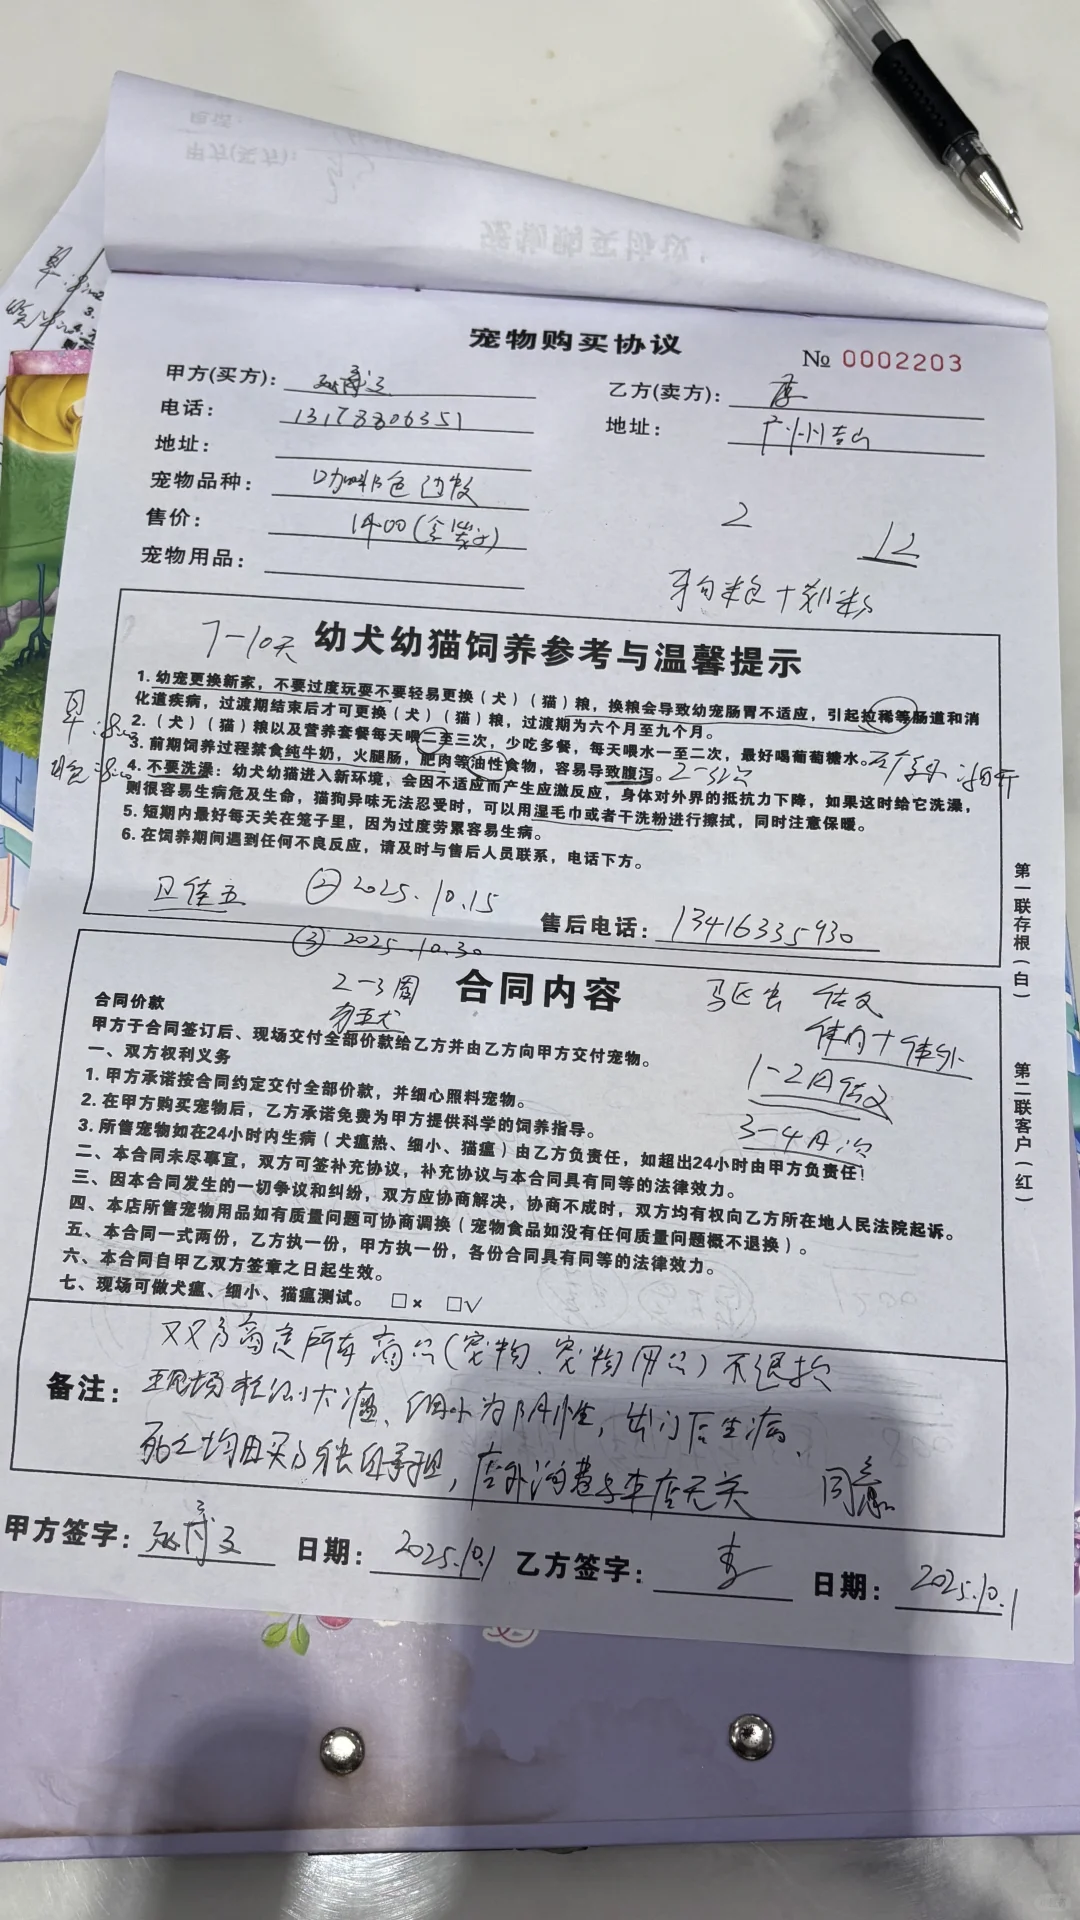 宠物购买协议
№ 0002203
甲方(买方):
乙方(卖方):
电话: 13178806351
地址: 广州
地址:
宠物品种: 咖啡色边牧
售价: 1400(含
2
12
宠物用品:
7-10天
幼犬幼猫饲养参考与温馨提示
1. 幼宠更换新家，不要过度玩耍不要轻易更换（犬）（猫）粮，换粮会导致幼宠肠胃不适应，引起拉稀等肠道和消
化道疾病，过渡期结束后才可更换（犬）（猫）粮，过渡期为六个月至九个月。
2.（犬）（猫）粮以及营养套餐每天喂二至三次，少吃多餐，每天喂水一至二次，最好喝葡萄糖水。
3. 前期饲养过程禁食纯牛奶，火腿肠，肥肉等油性食物，容易导致腹泻。
4. 不要洗澡：幼犬幼猫进入新环境，会因不适应而产生应激反应，身体对外界的抵抗力下降，如果这时给它洗澡，
则很容易生病危及生命，猫狗异味无法忍受时，可以用湿毛巾或者干洗粉进行擦拭，同时注意保暖。
5. 短期内最好每天关在笼子里，因为过度劳累容易生病。
6. 在饲养期间遇到任何不良反应，请及时与售后人员联系，电话下方。
早
晚
卫佳五
② 2025.10.15
售后电话: 13416335930
③ 2025.10.30
2-3周
合同内容
合同价款
甲方于合同签订后、现场交付全部价款给乙方并由乙方向甲方交付宠物。
体内+体外
一、双方权利义务
1-2月一次
1. 甲方承诺按合同约定交付全部价款，并细心照料宠物。
2. 在甲方购买宠物后，乙方承诺免费为甲方提供科学的饲养指导。
3-4月
3. 所售宠物如在24小时内生病（犬瘟热、细小、猫瘟）由乙方负责任，如超出24小时由甲方负责任！
二、本合同未尽事宜，双方可签补充协议，补充协议与本合同具有同等的法律效力。
三、因本合同发生的一切争议和纠纷，双方应协商解决，协商不成时，双方均有权向乙方所在地人民法院起诉。
四、本店所售宠物用品如有质量问题可协商调换（宠物食品如没有任何质量问题概不退换）。
五、本合同一式两份，乙方执一份，甲方执一份，各份合同具有同等的法律效力。
六、本合同自甲乙双方签章之日起生效。
七、现场可做犬瘟、细小、猫瘟测试。 □× □√
第一联存根(白)
第二联客户(红)
双方商定所有商品(宠物、宠物用品)不退换
备注: 现场检测犬瘟、细小为阴性，出门后生病、
死亡均由买方独自承担，店外消费与本店无关 同意
甲方签字: 日期: 2025.10.1 乙方签字: 日期: 2025.10.1